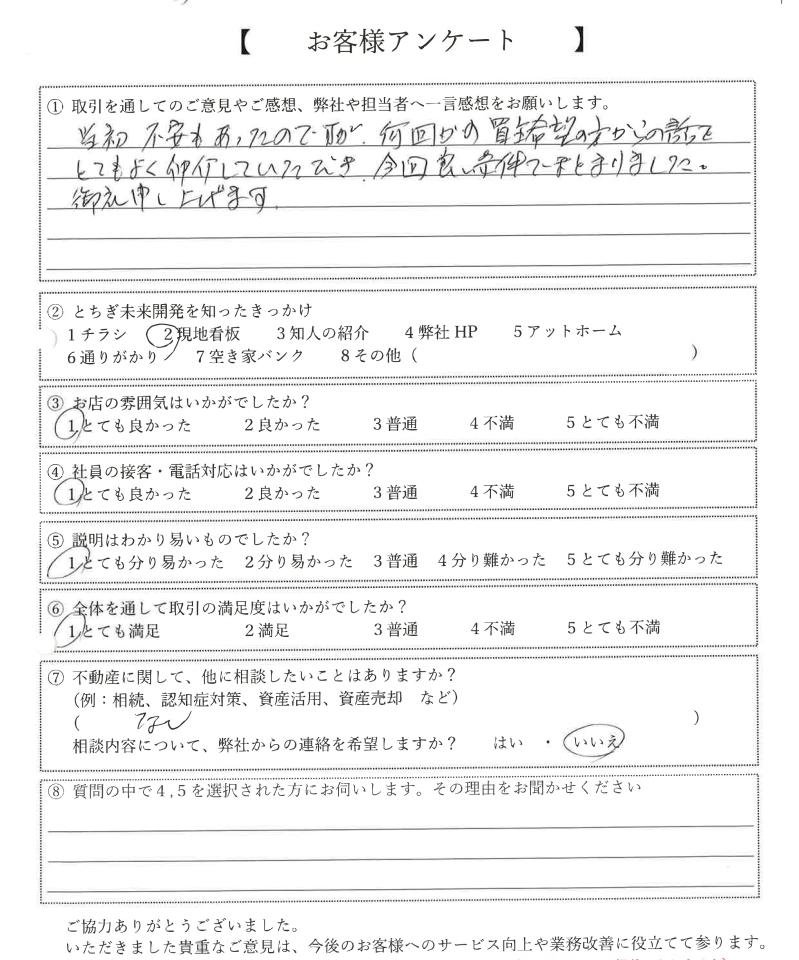 【 お客様アンケート 】
① 取引を通してのご意見やご感想、弊社や担当者へ一言感想をお願いします。
当初 不安もあったのですが、何回かの買主希望の方からの話を
とてもよく仲介していただき、今回良い条件でまとまりました。
御礼申し上げます。
② とちぎ未来開発を知ったきっかけ
1チラシ 2現地看板 3知人の紹介 4弊社HP 5アットホーム
6通りがかり 7空き家バンク 8その他（ ）
③ お店の雰囲気はいかがでしたか？
1とても良かった 2良かった 3普通 4不満 5とても不満
④ 社員の接客・電話対応はいかがでしたか？
1とても良かった 2良かった 3普通 4不満 5とても不満
⑤ 説明はわかり易いものでしたか？
1とても分り易かった 2分り易かった 3普通 4分り難かった 5とても分り難かった
⑥ 全体を通して取引の満足度はいかがでしたか？
1とても満足 2満足 3普通 4不満 5とても不満
⑦ 不動産に関して、他に相談したいことはありますか？
（例：相続、認知症対策、資産活用、資産売却 など）
（ なし ）
相談内容について、弊社からの連絡を希望しますか？ はい ・ いいえ
⑧ 質問の中で4,5を選択された方にお伺いします。その理由をお聞かせください
ご協力ありがとうございました。
いただきました貴重なご意見は、今後のお客様へのサービス向上や業務改善に役立てて参ります。